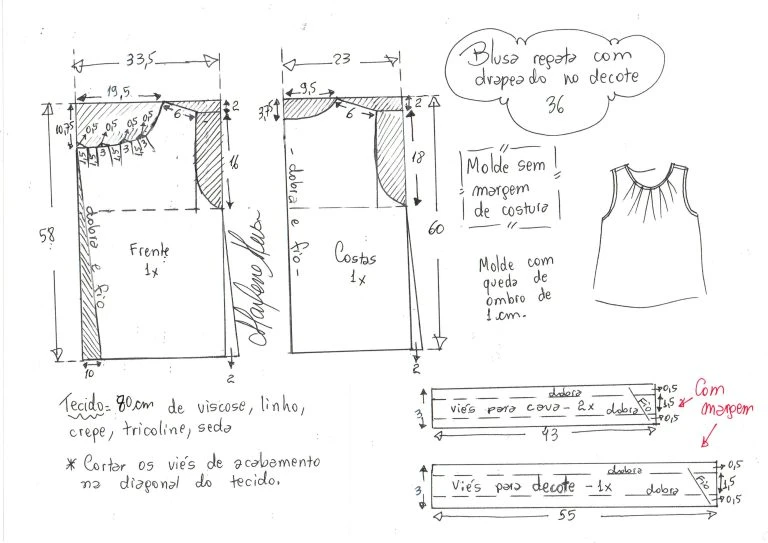 Blusa regata com
drapeado no decote
36
33,5
19,5
2
6
10,75
0,5
0,5
0,5
0,5
1,5
1,5
3
1,5
1,5
3
16
58
dobra e fio
Frente
1x
10
2
23
9,5
2
3,75
6
18
60
- dobra e fio -
Costas
1x
2
Molde sem
margem
de costura
Molde com
queda de
ombro de
1 cm.
Tecido = 80 cm de viscose, linho,
crepe, tricoline, seda
* Cortar os viés de acabamento
na diagonal do tecido.
dobra
3
viés para cava - 2x
dobra
fio
0,5
1,5
0,5
43
Com
margem
dobra
3
viés para decote - 1x
dobra
fio
0,5
1,5
0,5
55